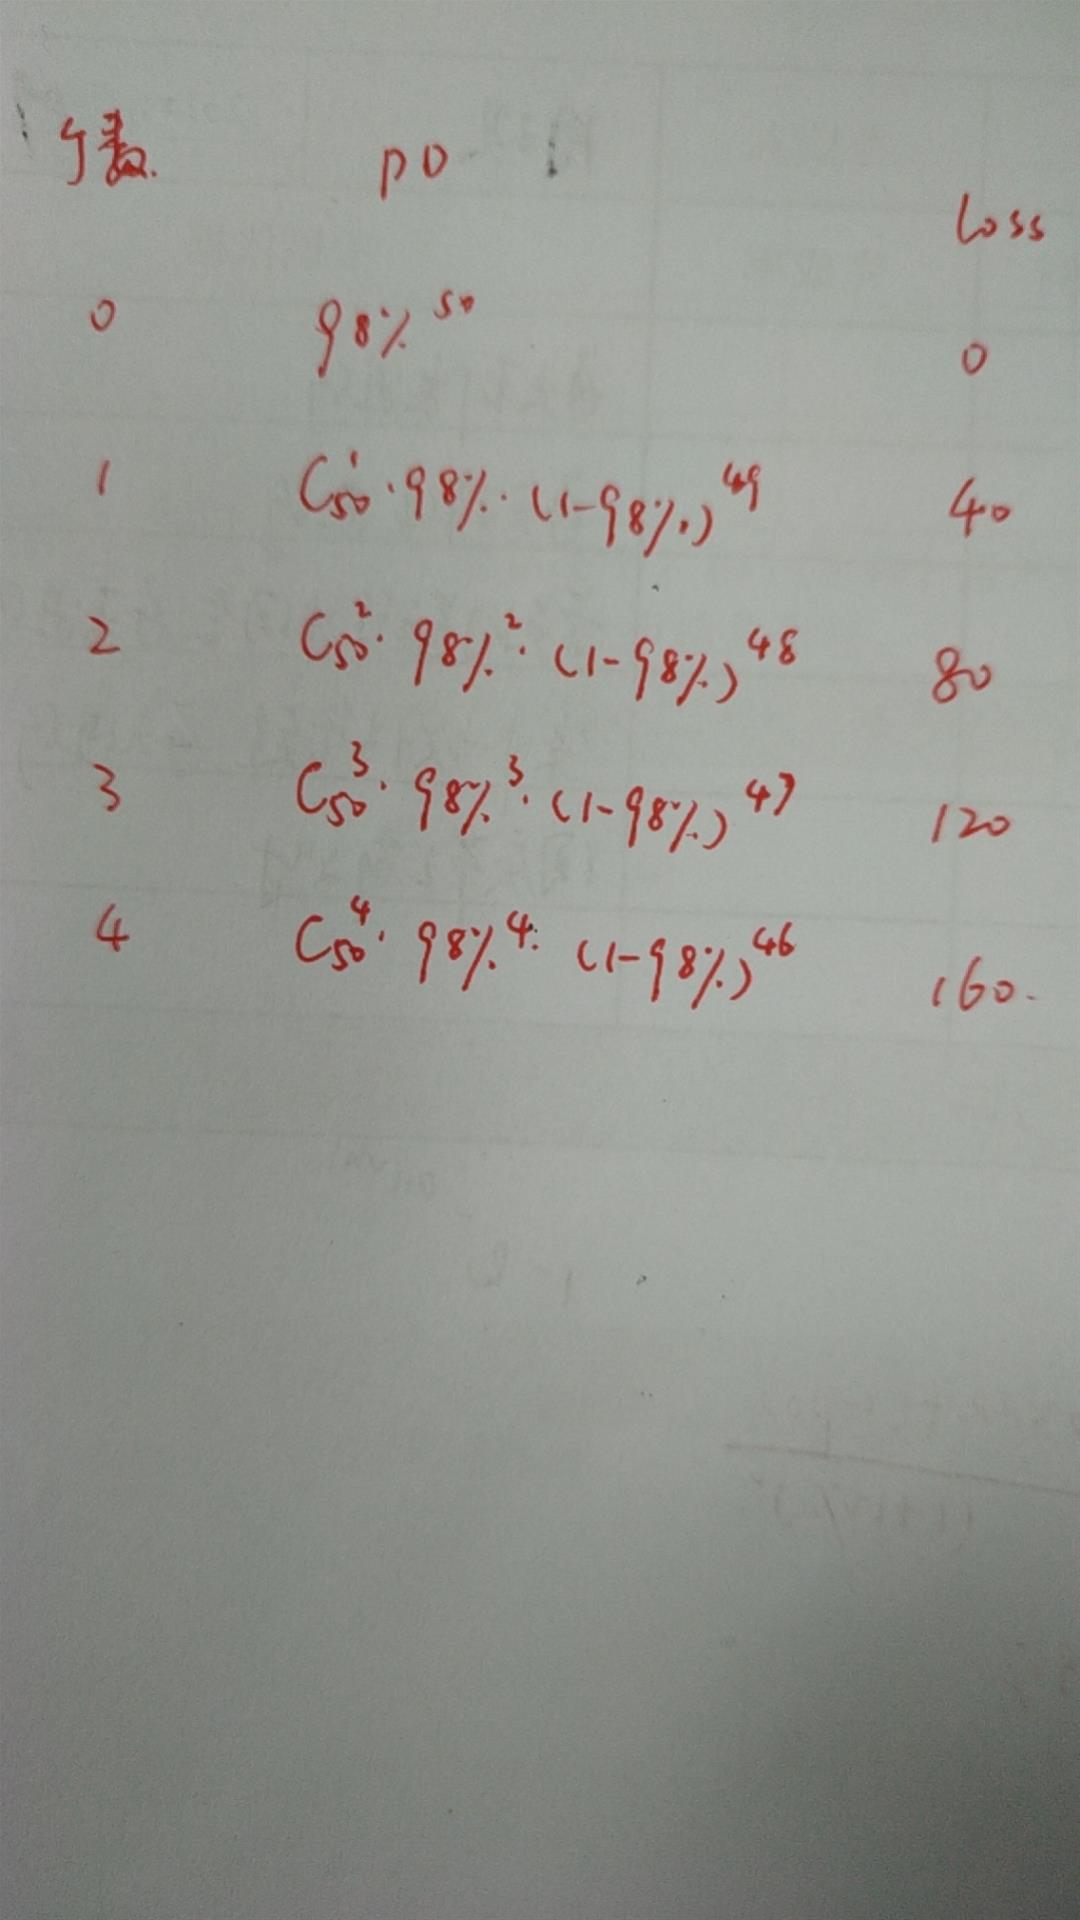 个数. PD Loss
0 98%⁵⁰ 0
1 C₅₀¹·98%·(1-98%)⁴⁹ 40
2 C₅₀²·98%²·(1-98%)⁴⁸ 80
3 C₅₀³·98%³·(1-98%)⁴⁷ 120
4 C₅₀⁴·98%⁴·(1-98%)⁴⁶ 160.